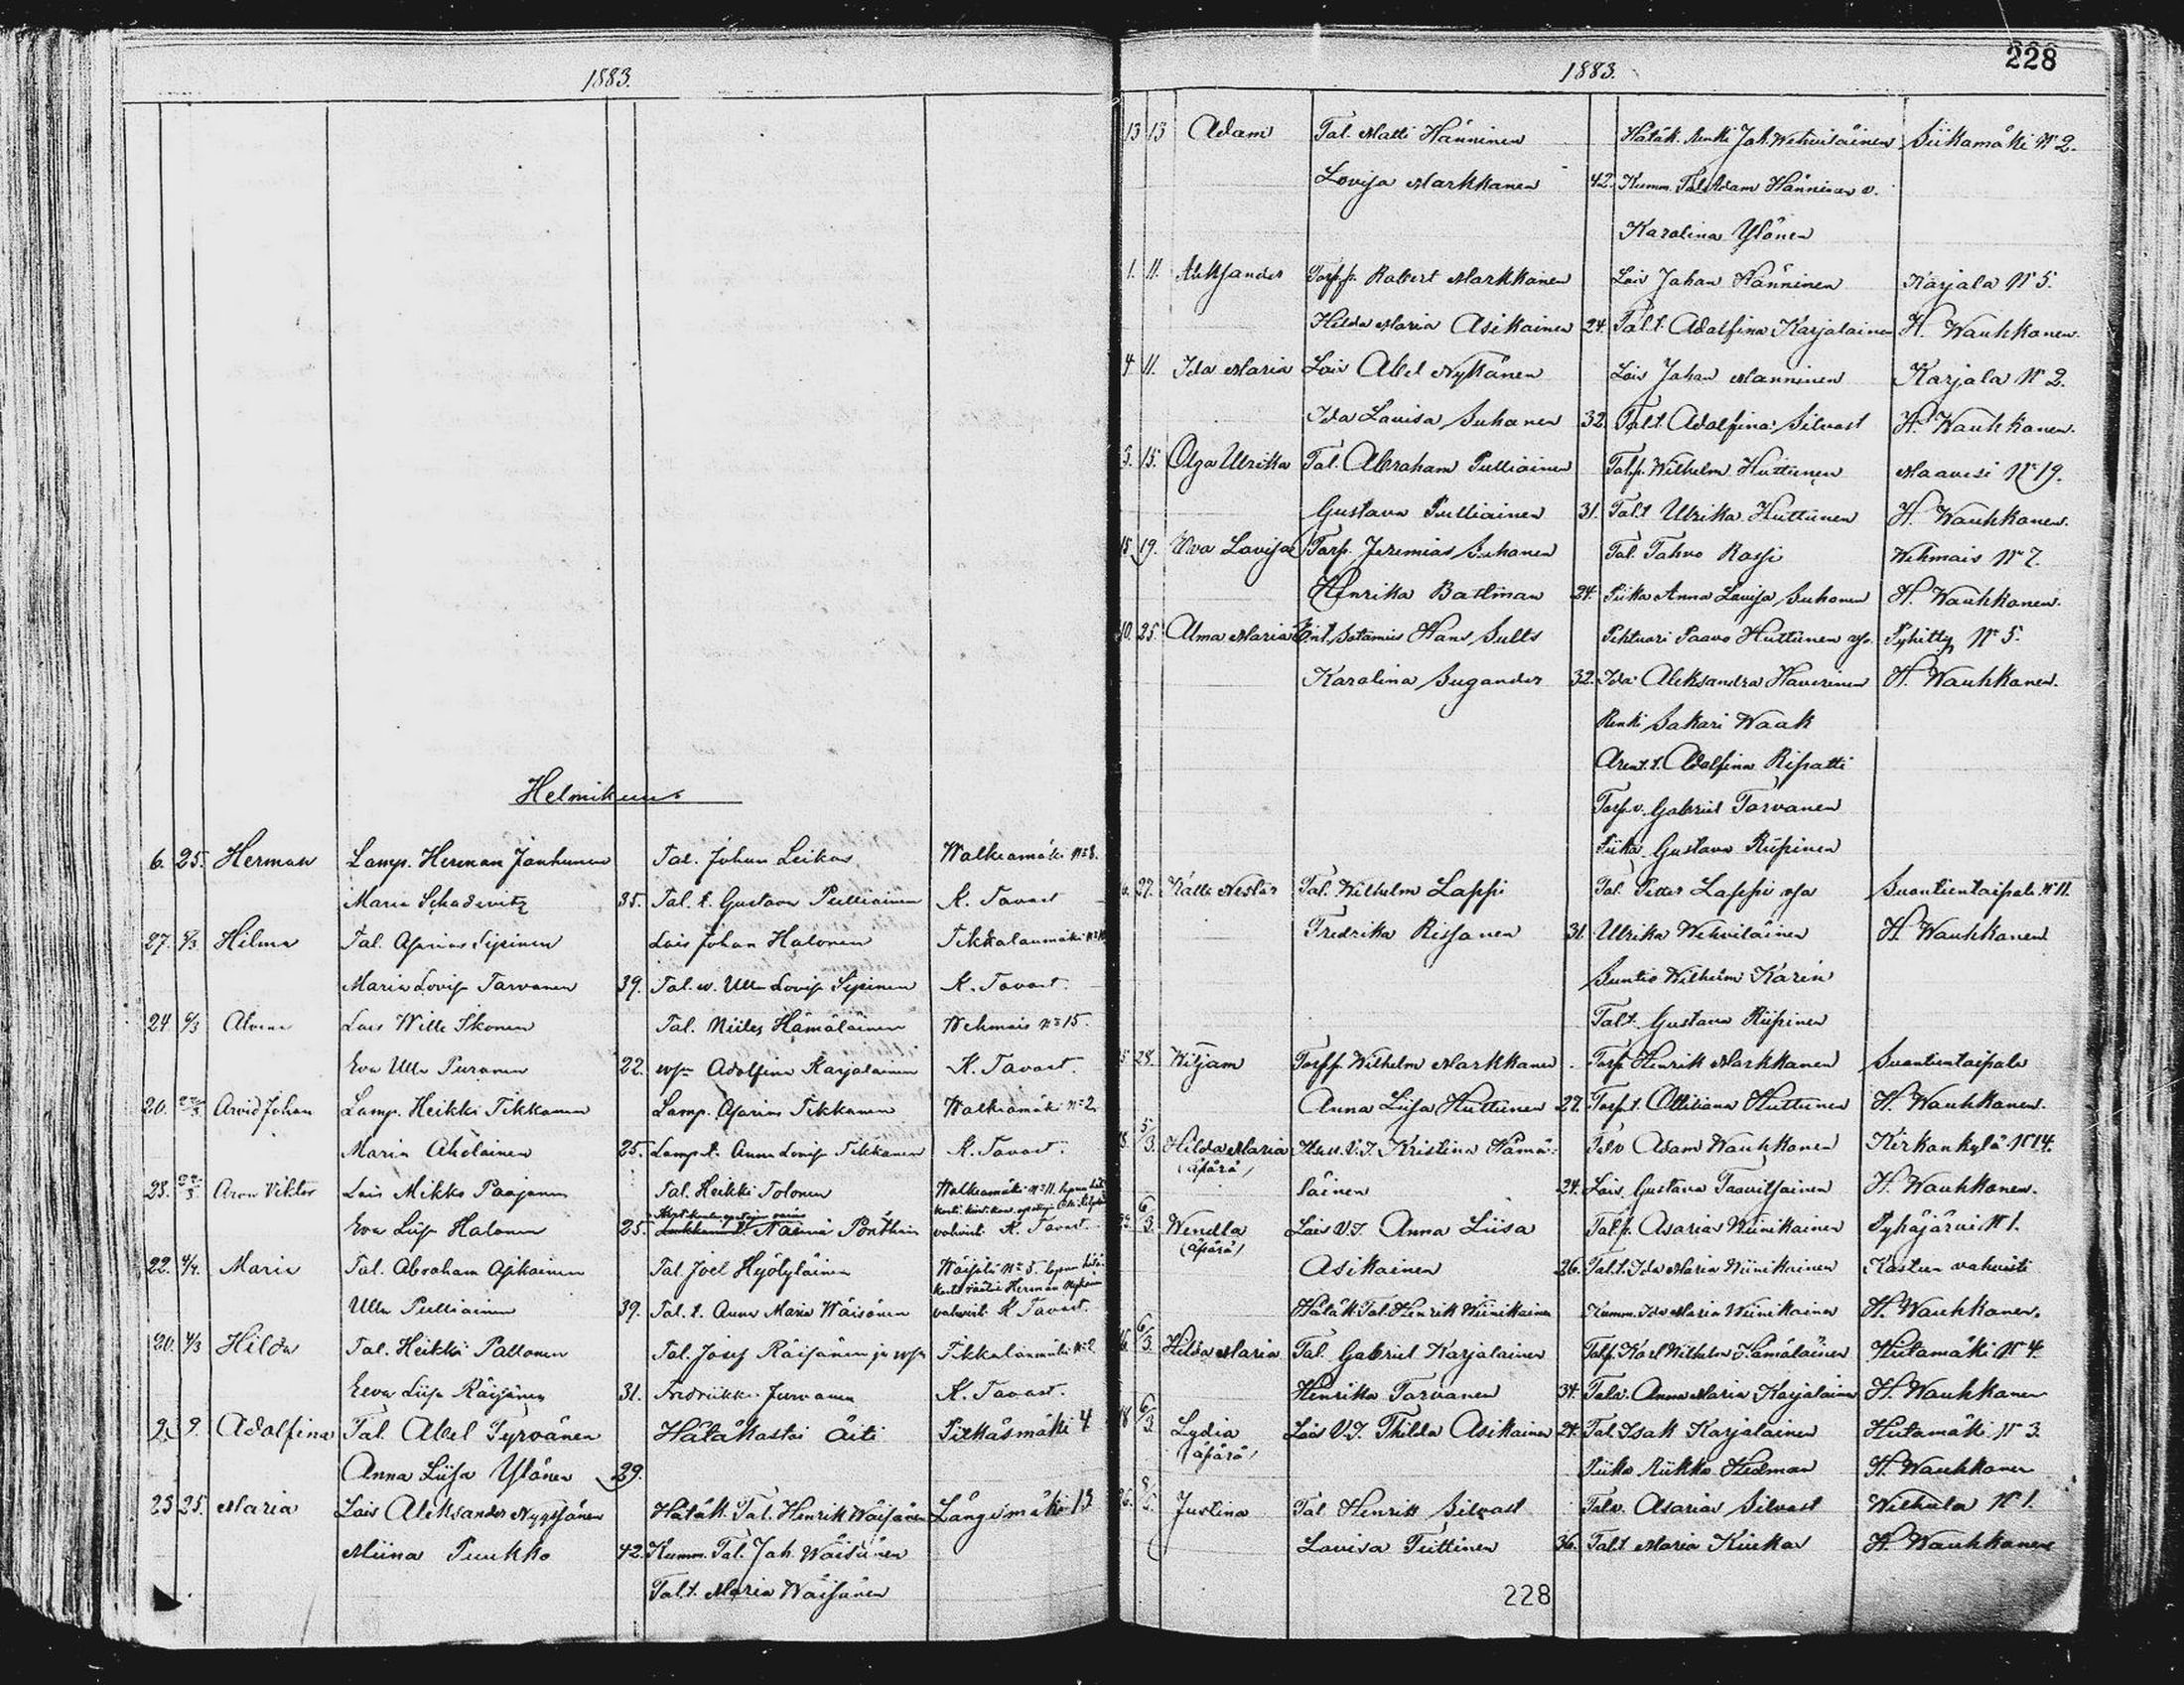 1883.
Helmikuu
6. 25. Herman Lamp. Herman Janhunen Tal. Johan Leikas Walkeamäki № 8.
Maria Schadevitz 35. Tal. t. Gustava Pulliainen K. Tavast
27. 4/3 Hilma Tal. Asarias Sipinen Lois Johan Halonen Tikkalanmäki
Maria Lovisa Tarvanen 39. Tal. w. Ulla Lovisa Sipinen K. Tavast.
24 4/3 Lois Wille Ikonen Tal. Niiles Hämäläinen Wehmais № 15.
Eva Ulla Puranen 22. wso Adolfina Karjalainen K. Tavast.
20. Arvid Johan Lamp. Heikki Tikkanen Lamp. Asarias Tikkanen Walkeamäki № 2
Maria Aholainen 25. Lamp. t. Anna Lovisa Tikkanen K. Tavast.
28. Aron Viktor Lois Mikko Paajanen Tal. Heikki Tolonen Walkeamäki № 11.
Eva Liisa Halonen 25. Naimi Pönthin vahvisti K. Tavast
22. 4/4. Maria Tal. Abraham Asikainen Tal. Joel Hyötyläinen Wäisälä № 5
Ulla Pulliainen 39. Tal. t. Anna Maria Wäisänen vahvisti K Tavast.
20. 4/3 Hilda Tal. Heikki Paltonen Tal. Josef Räisänen ja wso Tikkalanmäki № 2
Eeva Liisa Räisänen 31. Fredriikka Jurvanen K. Tavast.
9. 9. Adolfina Tal. Abel Tyrvänen Hätäkastoi äiti Pitkäsmäki 4
Anna Liisa Ylönen 29.
23 25. Maria Lois Aleksander Nyyssönen Hätäk. Tal. Henrik Wäisänen Längelmäki 13
Miina Puukko 42. Kumm. Tal. Joh. Wäisänen
Tal.t. Maria Wäisänen
228
1883.
13 13 Adam Tal. Matti Hänninen Hätäk. Renki Joh. Wehviläinen Siikamäki № 2.
Lovisa Markkanen 42. Kumm. Tal. Adam Hänninen v.
Karolina Ylönen
1. 11. Aleksander Torpp. Robert Markkanen Lois Johan Hänninen Karjala № 5.
Hilda Maria Asikainen 24. Tal.t. Adolfina Karjalainen H. Wauhkonen.
4 11. Ida Maria Lois Abel Nykänen Lois Johan Manninen Karjala № 2.
Ida Lovisa Suhonen 32. Tal.t. Adolfina Silvast H. Wauhkonen.
3. 15. Olga Ulrika Tal. Abraham Pulliainen Tal.p. Wilhelm Huttunen Maavesi № 19.
Gustava Pulliainen 31. Tal.t Ulrika Huttunen H. Wauhkonen.
18 19. Eva Lovisa Torp. Jeremias Suhonen Tal. Tahvo Rossi Wehmais № 7.
Henrika Backman 24. Piika Anna Lovisa Suhonen H. Wauhkonen.
10. 25. Alma Maria Ent. Sotamies Hans Sults Pehtuori Paavo Huttunen Pyhitty № 5.
Karolina Sugander 32. Ida Aleksandra Haverinen H. Wauhkonen.
Renki Sakari Waak
Arent.t. Adolfina Ripatti
Torp.v. Gabriel Tarvanen
Piika Gustava Riipinen
27. Kalle Nestor Tal. Wilhelm Lappi Tal. Petter Lappi Suontientaipale № 11.
Fredrika Rissanen 31. Ulrika Wehviläinen H. Wauhkonen
Suntio Wilhelm Karén
Tal.t. Gustava Riipinen
28. Wiljam Torpp. Wilhelm Markkanen Torp. Henrik Markkanen Suontientaipale
Anna Liisa Huttunen 27. Torp.t. Ottiliana Huttunen H. Wauhkonen.
5/3. Hilda Maria Kristina Hämä- Tal.v Adam Wauhkonen Kirkonkylä № 14.
(äpärä) läinen 24. Lois. Gustava Taavitsainen H. Wauhkonen.
6/3. Wendla Lois V.T. Anna Liisa Tal.p. Asarias Wiinikainen Pyhäjärvi № 1.
(äpärä) Asikainen 26. Tal.t. Ida Maria Wiinikainen Kasteen vahvisti
Hätäk. Tal. Henrik Wiinikainen Kumm. Ida Maria Wiinikainen H. Wauhkonen.
6/3 Hilda Maria Tal. Gabriel Karjalainen Tal.p. Karl Wilhelm Hämäläinen Huttamäki № 4.
Henrika Tarvanen 34. Tal.v. Anna Maria Karjalainen H. Wauhkonen
18 6/3. Lydia Lois V.T. Thilda Asikainen 24. Tal. Isak Karjalainen Huttamäki № 3.
(äpärä) Piika Riikka Hedman H. Wauhkonen
Justina Tal Henrik Silvast Tal.v. Asarias Silvast Wiehula № 1.
Lovisa Tiittinen 36. Tal.t Maria Kiukas H. Wauhkonen
228